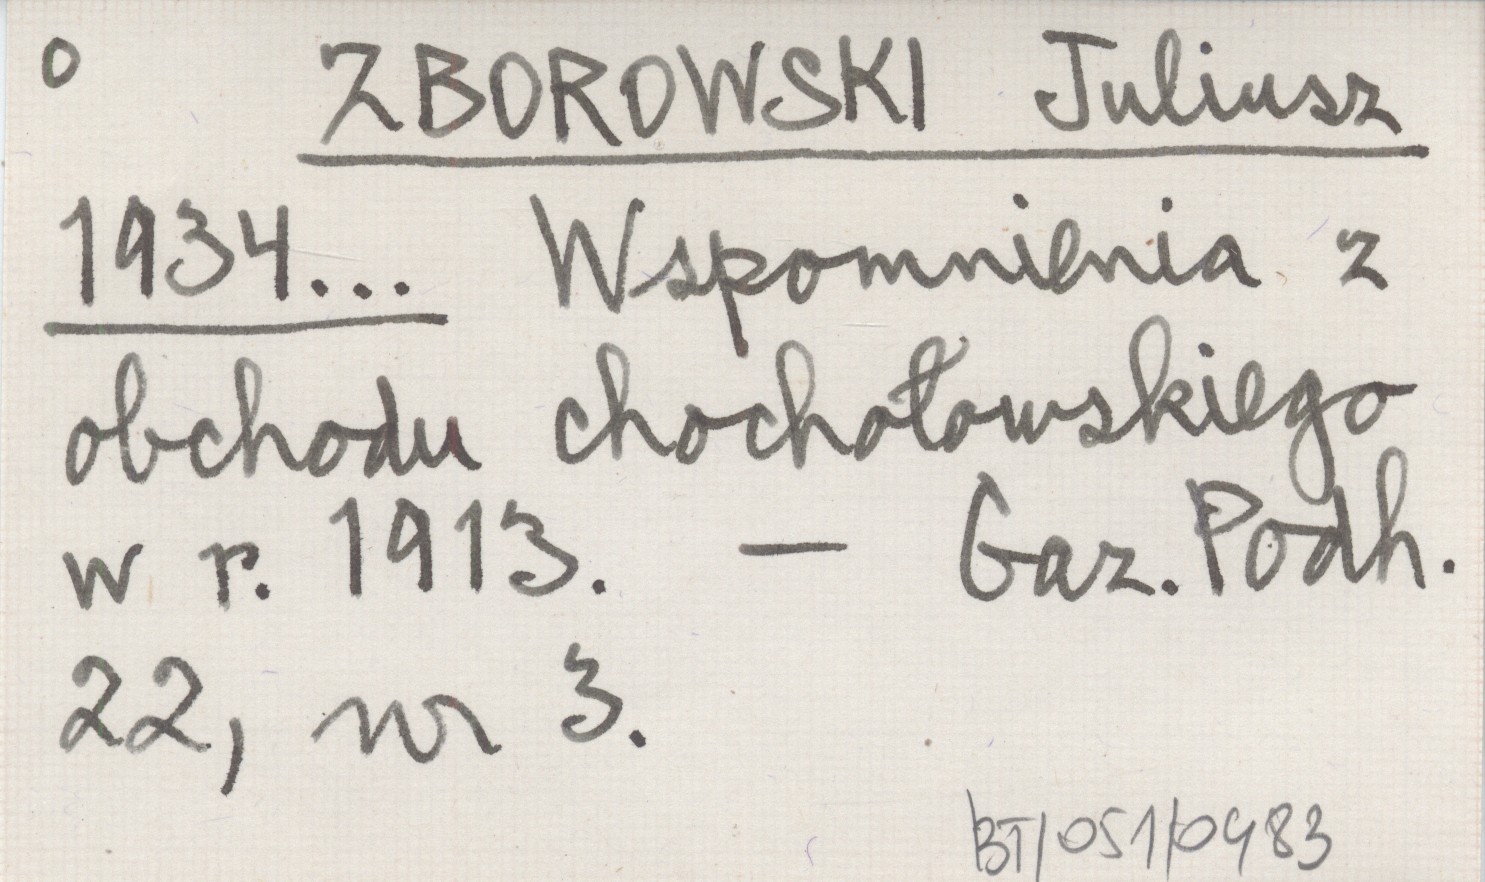 o ZBOROWSKI Juliusz
1934... Wspomnienia z
obchodu chochołowskiego
w r. 1913. — Gaz. Podh.
22, nr 3.
BT/051/0983